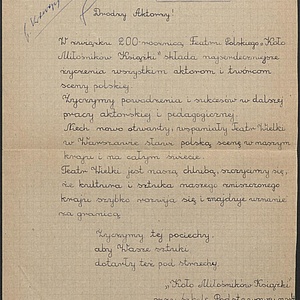 Drodzy Aktorzy!
W związku 200 rocznicą Teatru Polskiego „Koło
Miłośników Książki" składa najserdeczniejsze
życzenia wszystkim aktorom i twórcom
sceny polskiej.
Życzymy powodzenia i sukcesów w dalszej
pracy aktorskiej i pedagogicznej.
Niech nowo otwarty, wspaniały Teatr Wielki
w Warszawie sławi polską scenę w naszym
kraju i na całym świecie.
Teatr Wielki jest naszą chlubą, szczycimy się,
że kultura i sztuka naszego zniszczonego
kraju szybko rozwija się i znajduje uznanie
za granicą.
Życzymy tej pociechy,
aby Wasze sztuki
dotarły też pod strzechy.
„Koło Miłośników Książki"